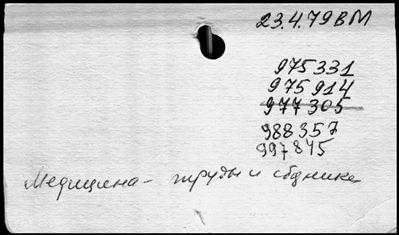 23.4.79ВМ
975331
975914
977305
988357
997845
Медицина – труды и сборники